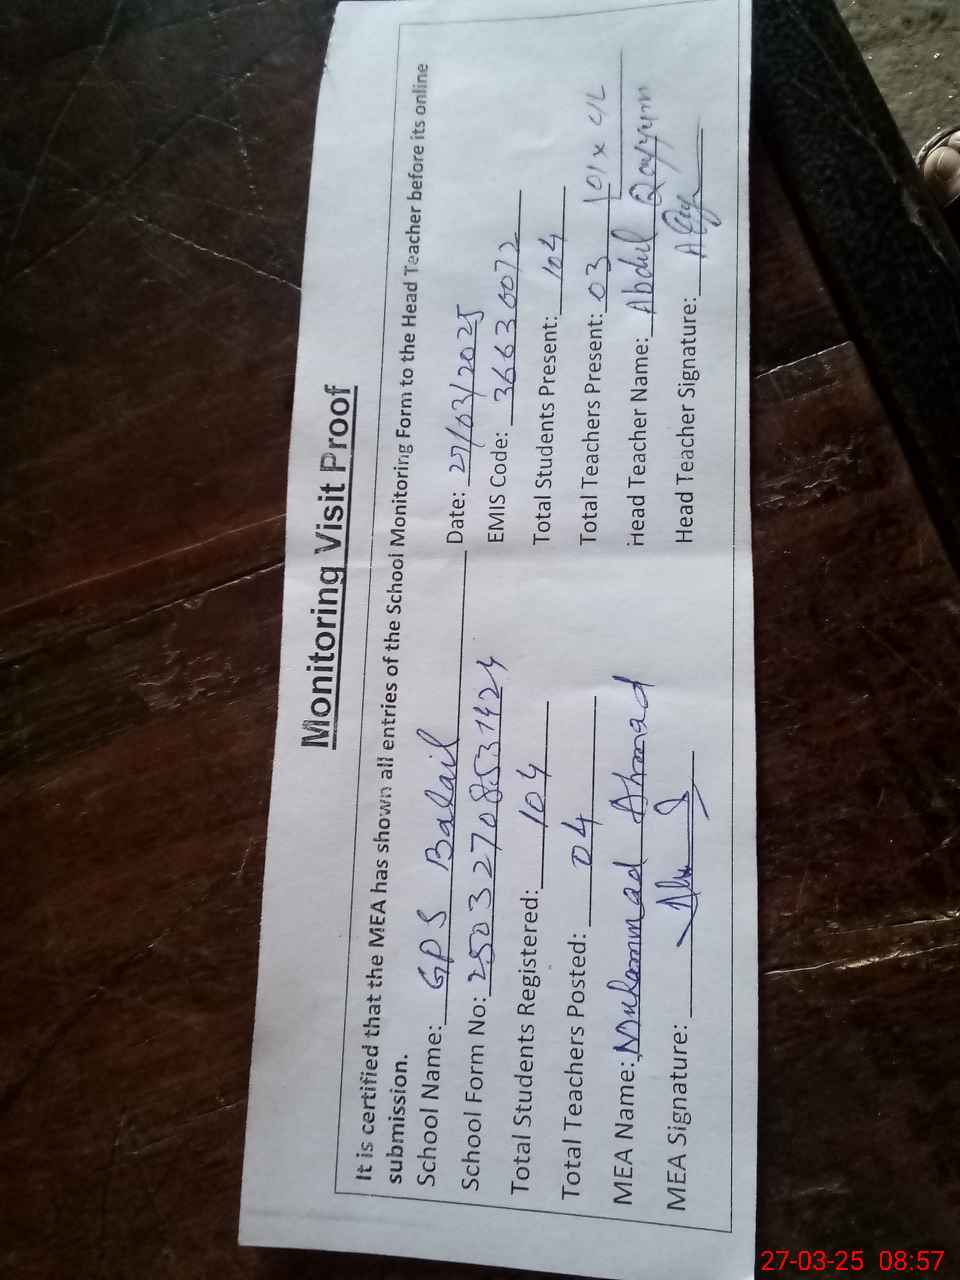 Monitoring Visit Proof
It is certified that the MEA has shown all entries of the School Monitoring Form to the Head Teacher before its online
submission.
School Name: GPS Badail Date: 27/03/2025
School Form No: 25032708531424 EMIS Code: 36630072
Total Students Registered: 104 Total Students Present: 104
Total Teachers Posted: 04 Total Teachers Present: 03 01 x C/L
MEA Name: Muhammad Ahmad Head Teacher Name: Abdul Qayyum
MEA Signature: Head Teacher Signature:
27-03-25 08:57